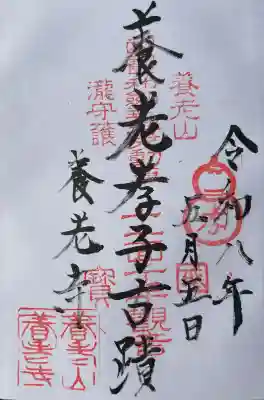 令和八年
五月五日
養老山
養老孝子古蹟
瀧守護
養老寺
寶
養老山
養老寺